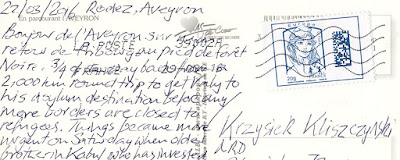 22/03/2016 Rodez, Aveyron
En parcourant l'AVEYRON
Bonjour de l'Aveyron sur
retour de Freiburg au pied de foret
Noire. 3/4 of way back from a
2,000km round trip to get Kaly to
his asylum destination before any
more borders are closed to
refugees. Things became more
urgent on Saturday when older
brother in Kabul who has invested
LA POSTE
FRANCE
20g
Krzysiek Kliszczyński